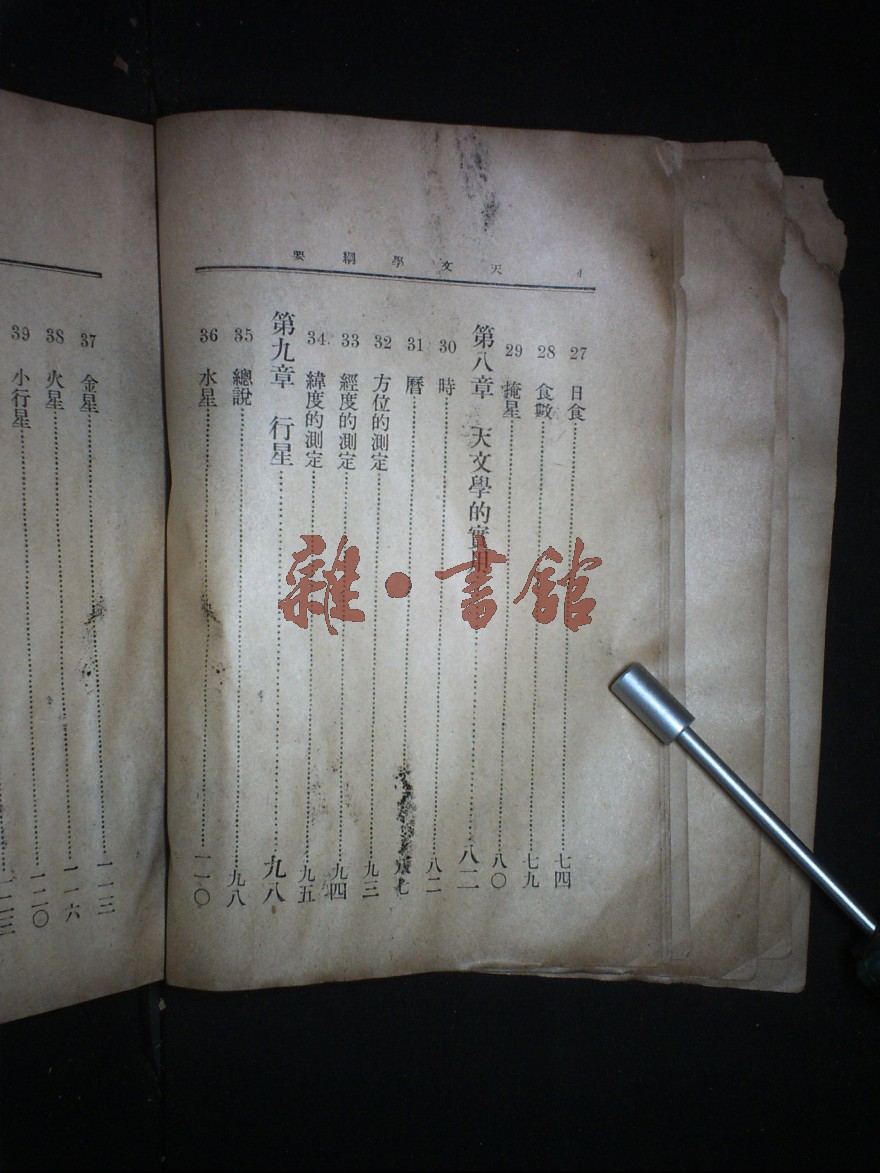 4 天文學綱要
27 日食 七四
28 食數 七九
29 掩星 八〇
第八章 天文學的實用 八二
30 時 八二
31 曆 八七
32 方位的測定 九三
33 經度的測定 九四
34 緯度的測定 九五
第九章 行星 九八
35 總說 九八
36 水星 一一〇
37 金星 一一三
38 火星 一一六
39 小行星 一二〇
雜·書館